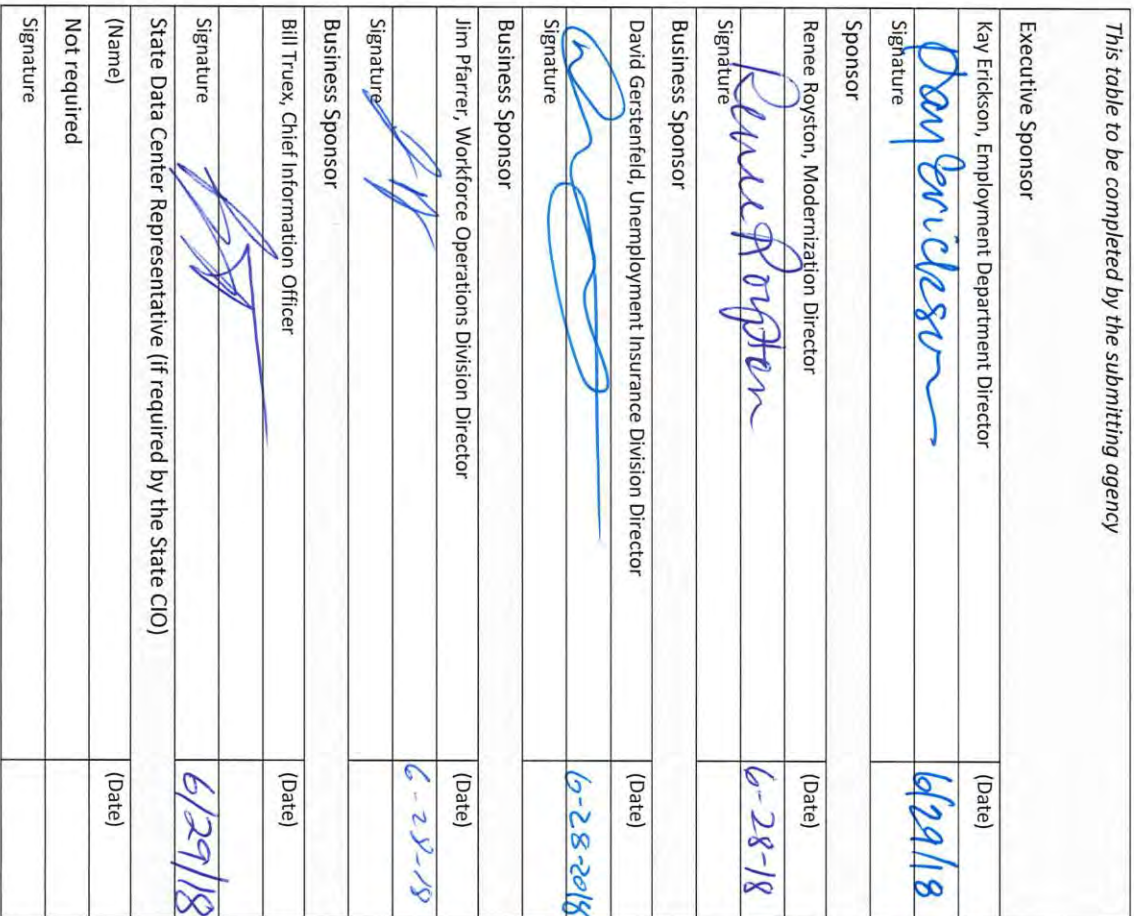 This table to be completed by the submitting agency
Executive Sponsor
Kay Erickson, Employment Department Director (Date)
Kay Erickson 6/29/18
Signature
Sponsor
Renee Royston, Modernization Director (Date)
Renee Royston 6-28-18
Signature
Business Sponsor
David Gerstenfeld, Unemployment Insurance Division Director (Date)
6-28-2018
Signature
Business Sponsor
Jim Pfarrer, Workforce Operations Division Director (Date)
6-28-18
Signature
Business Sponsor
Bill Truex, Chief Information Officer (Date)
Signature 6/29/18
State Data Center Representative (if required by the State CIO)
(Name) (Date)
Not required
Signature